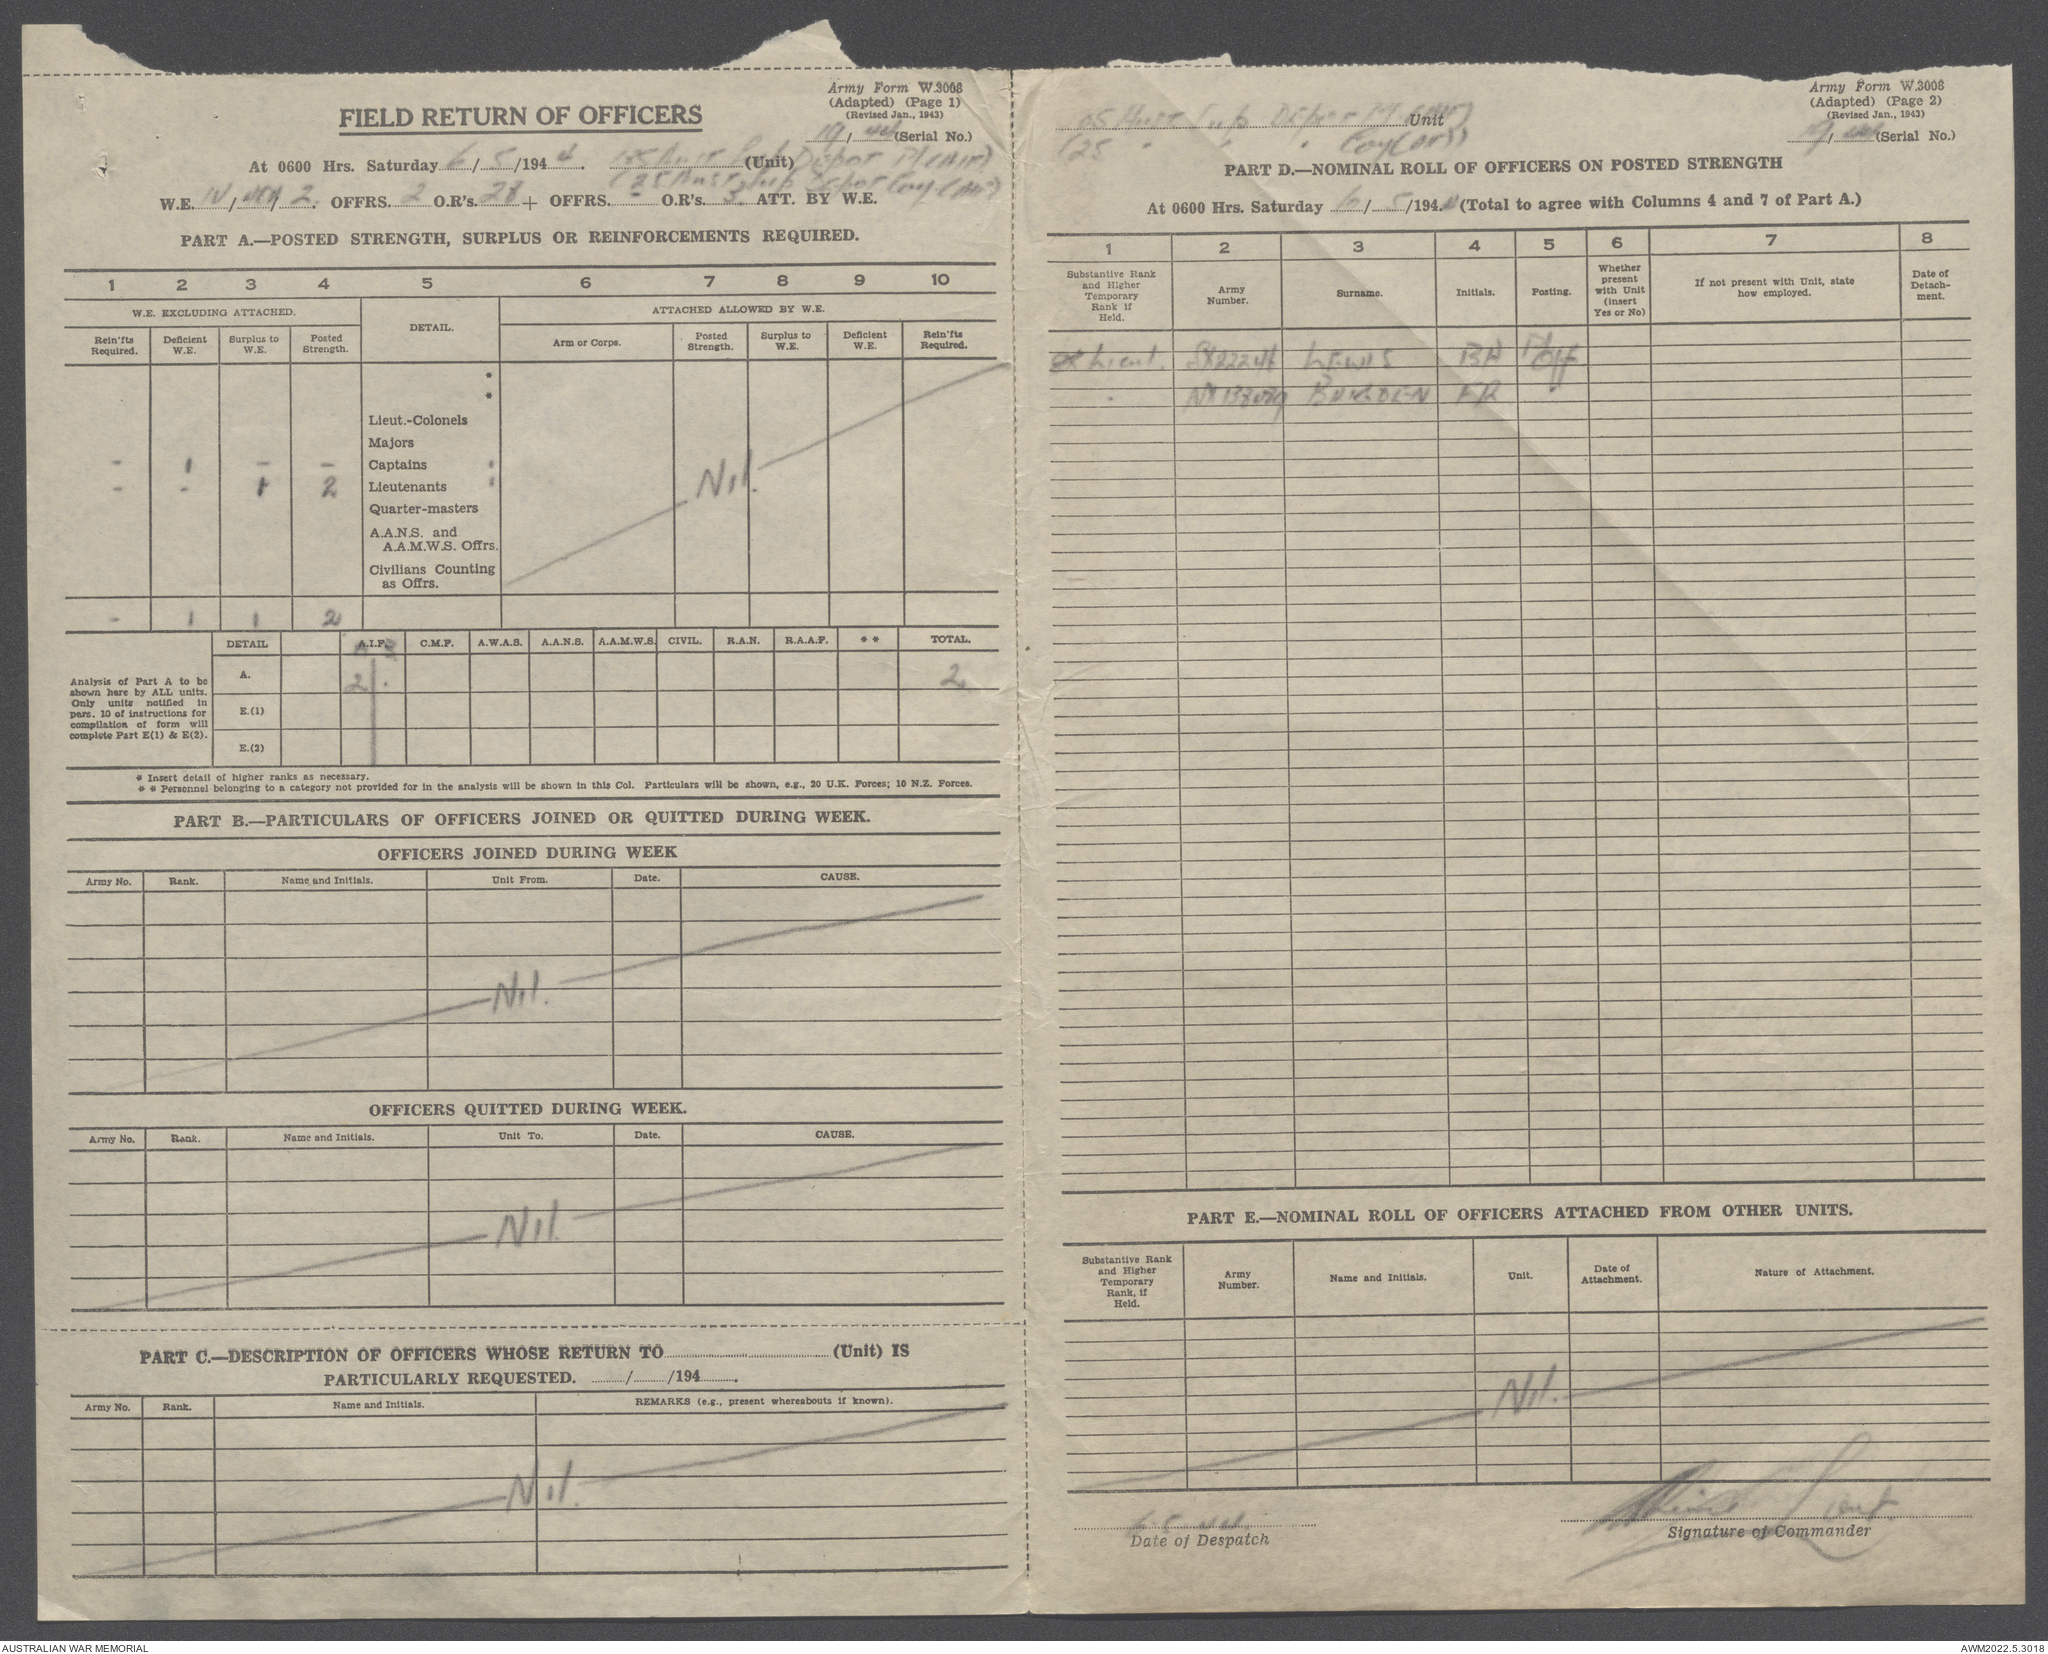 Army Form W.3008
(Adapted) (Page 1)
(Revised Jan., 1943)
FIELD RETURN OF OFFICERS
19/44 (Serial No.)
At 0600 Hrs. Saturday 6/5/1944. Aust Sup Depot Pl (AIF) (Unit)
(25 Aust Sup Depot Coy (AIF)
W.E. IV/ / 2. OFFRS. 2 O.R's. 28 + OFFRS. - O.R's. 3 ATT. BY W.E.
PART A.—POSTED STRENGTH, SURPLUS OR REINFORCEMENTS REQUIRED.
1 2 3 4 5 6 7 8 9 10
W.E. EXCLUDING ATTACHED. DETAIL. ATTACHED ALLOWED BY W.E.
Rein'fts Required. Deficient W.E. Surplus to W.E. Posted Strength. Arm or Corps. Posted Strength. Surplus to W.E. Deficient W.E. Rein'fts Required.
*
*
Lieut.-Colonels
Majors
- 1 - - Captains
- - 1 2 Lieutenants
Nil.
Quarter-masters
A.A.N.S. and
A.A.M.W.S. Offrs.
Civilians Counting
as Offrs.
- 1 1 2
DETAIL A.I.F. C.M.F. A.W.A.S. A.A.N.S. A.A.M.W.S. CIVIL. R.A.N. R.A.A.F. * * TOTAL.
Analysis of Part A to be
shown here by ALL units.
Only units notified in
para. 10 of instructions for
compilation of form will
complete Part E(1) & E(2).
A. 2 - 2
E.(1)
E.(2)
* Insert detail of higher ranks as necessary.
* * Personnel belonging to a category not provided for in the analysis will be shown in this Col. Particulars will be shown, e.g., 20 U.K. Forces; 10 N.Z. Forces.
PART B.—PARTICULARS OF OFFICERS JOINED OR QUITTED DURING WEEK.
OFFICERS JOINED DURING WEEK
Army No. Rank. Name and Initials. Unit From. Date. CAUSE.
Nil.
OFFICERS QUITTED DURING WEEK.
Army No. Rank. Name and Initials. Unit To. Date. CAUSE.
Nil.
PART C.—DESCRIPTION OF OFFICERS WHOSE RETURN TO (Unit) IS
PARTICULARLY REQUESTED. / /194 .
Army No. Rank. Name and Initials. REMARKS (e.g., present whereabouts if known).
Nil.
Army Form W.3008
(Adapted) (Page 2)
(Revised Jan., 1943)
Aust Sup Depot Pl (AIF) Unit
(25 " " " Coy (AIF))
19/44 (Serial No.)
PART D.—NOMINAL ROLL OF OFFICERS ON POSTED STRENGTH
At 0600 Hrs. Saturday 6/5/1944 (Total to agree with Columns 4 and 7 of Part A.)
1 2 3 4 5 6 7 8
Substantive Rank and Higher Temporary Rank if Held. Army Number. Surname. Initials. Posting. Whether present with Unit (insert Yes or No) If not present with Unit, state how employed. Date of Detachment.
Lieut. SX22246 LEWIS BH Pl Off
" BURDEN FR "
PART E.—NOMINAL ROLL OF OFFICERS ATTACHED FROM OTHER UNITS.
Substantive Rank and Higher Temporary Rank, if Held. Army Number. Name and Initials. Unit. Date of Attachment. Nature of Attachment.
Nil.
6.5.44.
Date of Despatch
Lieut.
Signature of Commander
AUSTRALIAN WAR MEMORIAL
AWM2022.5.3018